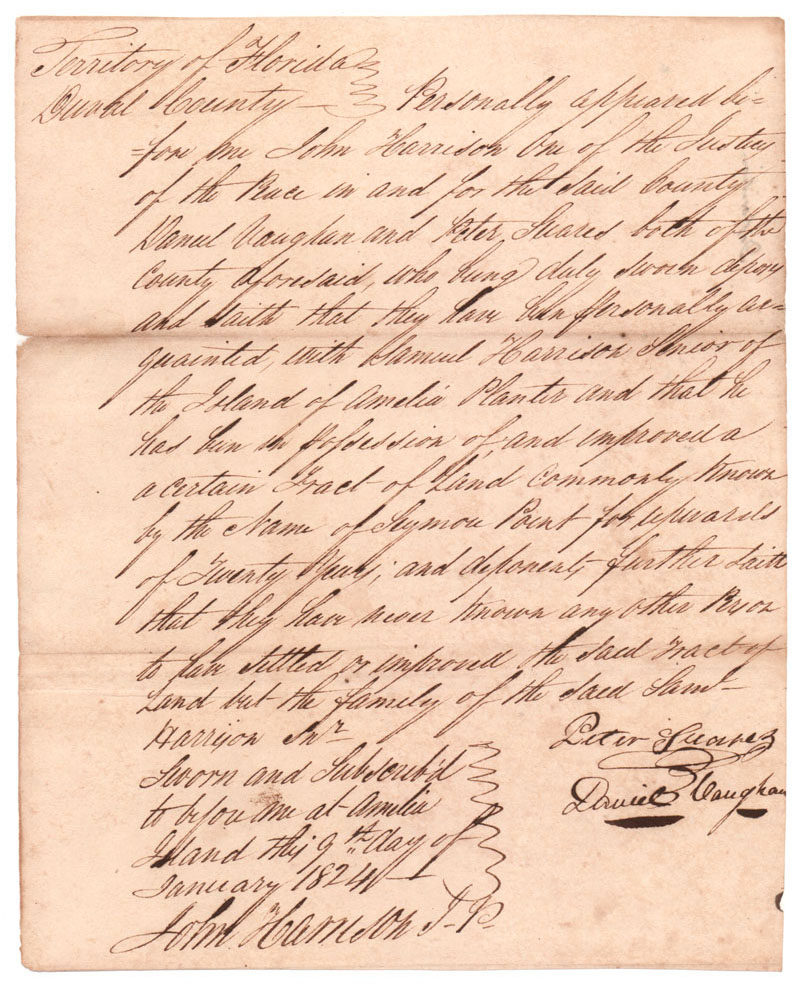 Territory of Florida
Duval County — Personally appeared be=
=fore me John Harrison One of the Justices
of the Peace in and for the said County
Daniel Vaughan and Peter Suares both of the
County aforesaid, who being duly sworn depose
and saith that they have been personally ac=
quainted, with Samuel Harrison Senior of
the Island of Amelia Planter and that he
has been in possession of, and improved a
a certain Tract of Land Commonly Known
by the Name of Seymou Point for upwards
of Twenty Years; and deponents further saith
that they have never Known any other Person
to have settled or improved the said Tract of
Land but the family of the said Saml
Harrison Snr
Peter Suarez
Sworn and Subscrib'd
Daniel Vaughan
to before me at Amelia
Island this 9th day of
January 1824 —
John Harrison J. P.